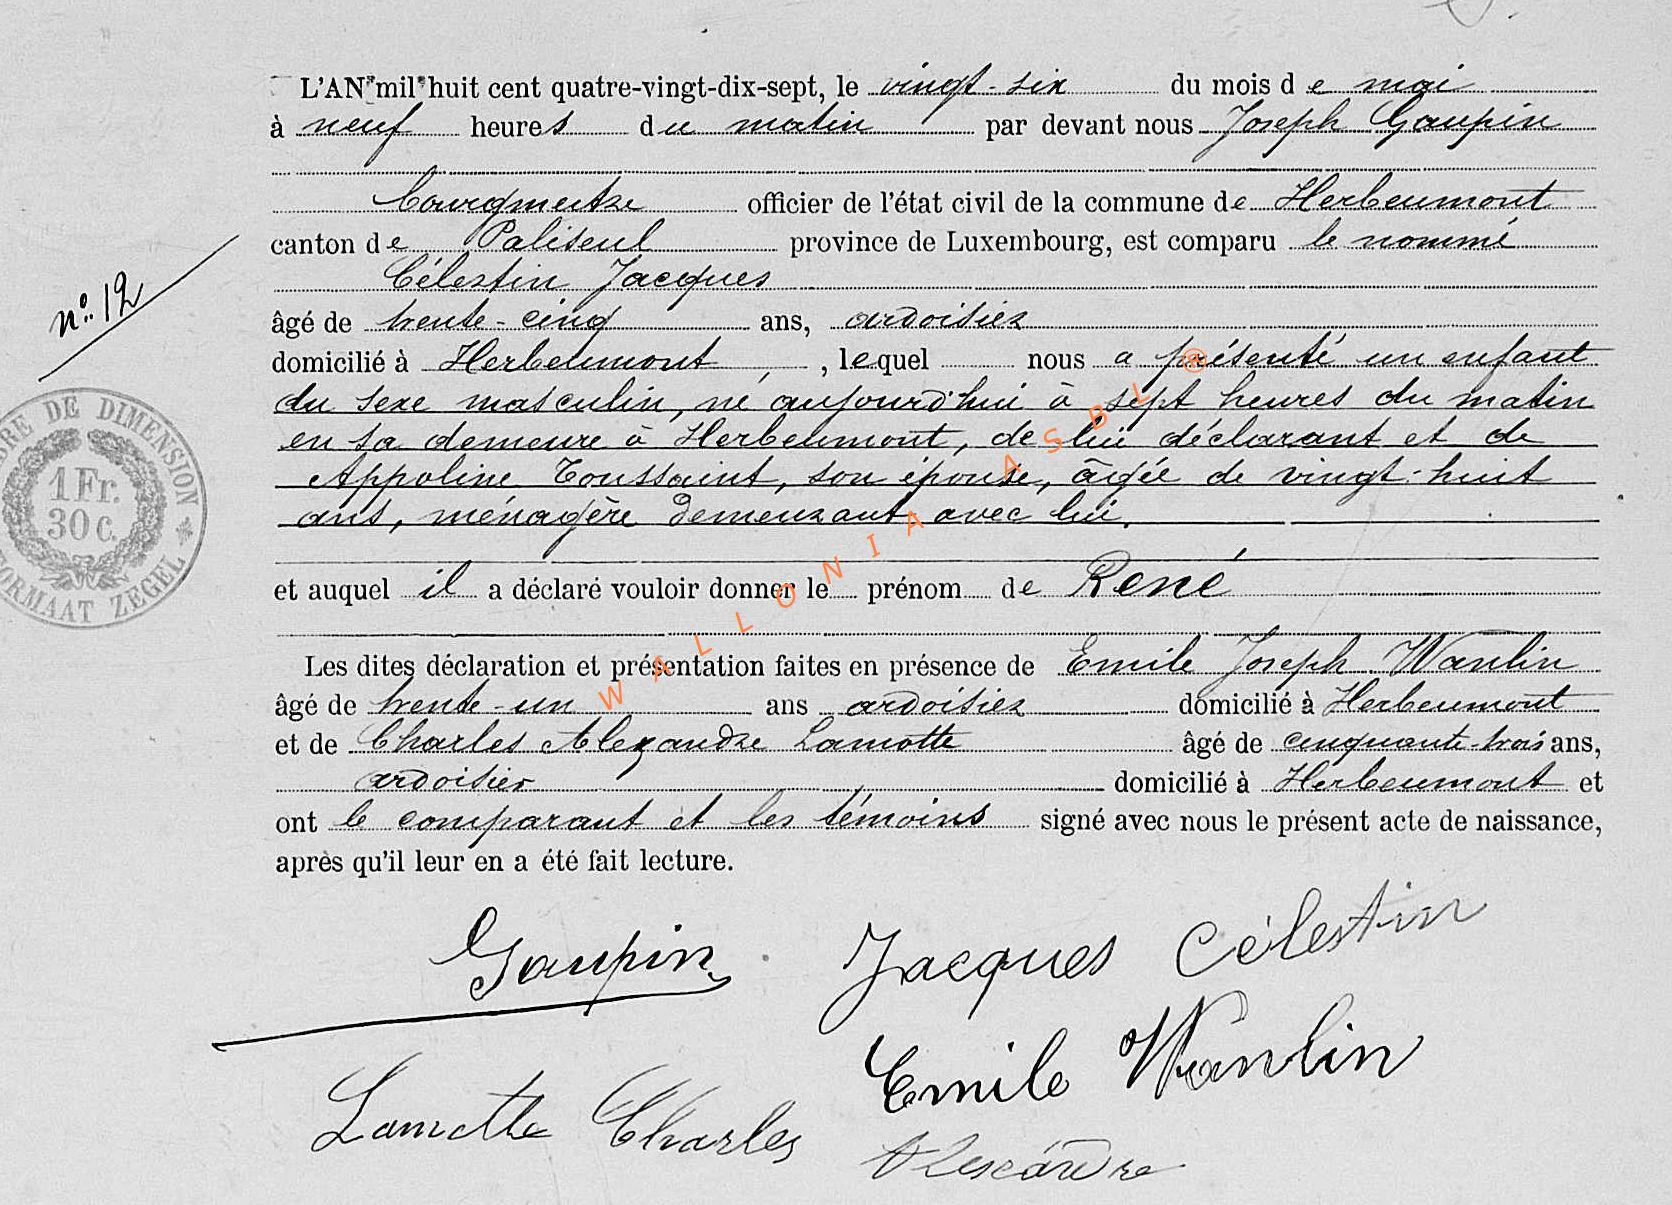 L'AN mil huit cent quatre-vingt-dix-sept, le vingt-six du mois de mai
à neuf heures du matin par devant nous Joseph Gaupin
bourgmestre officier de l'état civil de la commune de Herbeumont
canton de Paliseul province de Luxembourg, est comparu le nommé
Célestin Jacques
n° 12
âgé de trente-cinq ans, ardoisier
domicilié à Herbeumont, lequel nous a présenté un enfant
du sexe masculin, né aujourd'hui à sept heures du matin
en sa demeure à Herbeumont, de lui déclarant et de
Appoline Toussaint, son épouse, âgée de vingt-huit
ans, ménagère demeurant avec lui.
TIMBRE DE DIMENSION
1 Fr.
30 c.
FORMAAT ZEGEL
et auquel il a déclaré vouloir donner le prénom de René
Les dites déclaration et présentation faites en présence de Emile Joseph Wanlin
âgé de trente-un ans ardoisier domicilié à Herbeumont
et de Charles Alexandre Lamotte âgé de cinquante-trois ans,
ardoisier domicilié à Herbeumont et
ont le comparant et les témoins signé avec nous le présent acte de naissance,
après qu'il leur en a été fait lecture.
Gaupin Jacques Célestin
Emile Wanlin
Lamotte Charles
Alexandre
WALLONIA ASBL ®